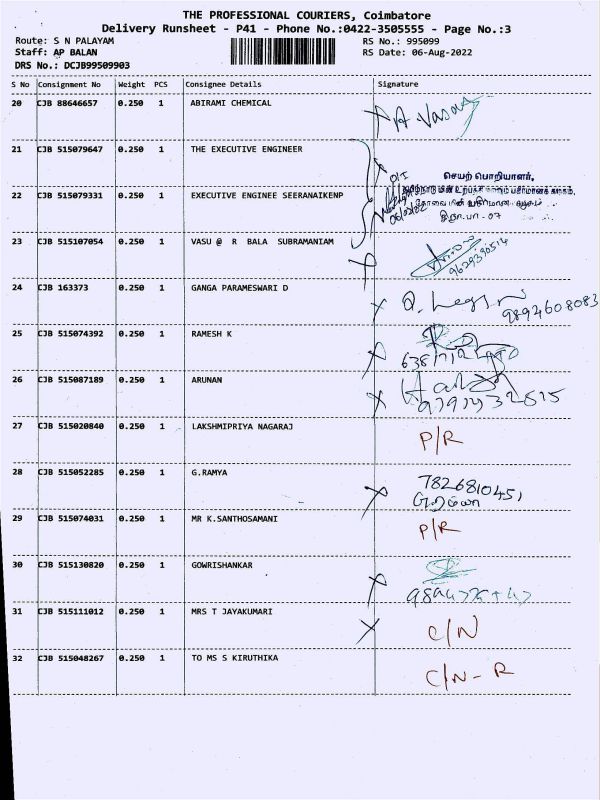 THE PROFESSIONAL COURIERS, Coimbatore
Delivery Runsheet - P41 - Phone No.:0422-3505555 - Page No.:3
Route: S N PALAYAM
Staff: AP BALAN
DRS No.: DCJB99509903
RS No.: 995099
RS Date: 06-Aug-2022
S No Consignment No Weight PCS Consignee Details Signature
20 CJB 88646657 0.250 1 ABIRAMI CHEMICAL
A Vasa
21 CJB 515079647 0.250 1 THE EXECUTIVE ENGINEER
செயற் பொறியாளர்,
22 CJB 515079331 0.250 1 EXECUTIVE ENGINEE SEERANAIKENP
23 CJB 515107054 0.250 1 VASU @ R BALA SUBRAMANIAM
9629390514
24 CJB 163373 0.250 1 GANGA PARAMESWARI D
9894608083
25 CJB 515074392 0.250 1 RAMESH K
26 CJB 515087189 0.250 1 ARUNAN
27 CJB 515020840 0.250 1 LAKSHMIPRIYA NAGARAJ P/R
28 CJB 515052285 0.250 1 G.RAMYA 7826810451
29 CJB 515074031 0.250 1 MR K.SANTHOSAMANI P/R
30 CJB 515130820 0.250 1 GOWRISHANKAR
31 CJB 515111012 0.250 1 MRS T JAYAKUMARI C/N
32 CJB 515048267 0.250 1 TO MS S KIRUTHIKA C/N - R